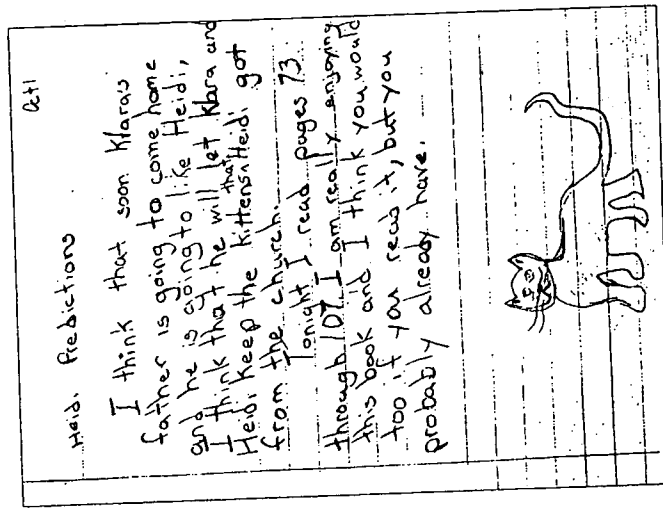 Oct 1
Heidi Predictions
I think that soon Klara's
father is going to come home
and he is going to like Heidi,
I think that he will let Klara and
Heidi keep the kittens that Heidi got
from the church.
Tonight I read pages 73
through 107 I am really enjoying
this book and I think you would
too if you read it, but you
probably already have.